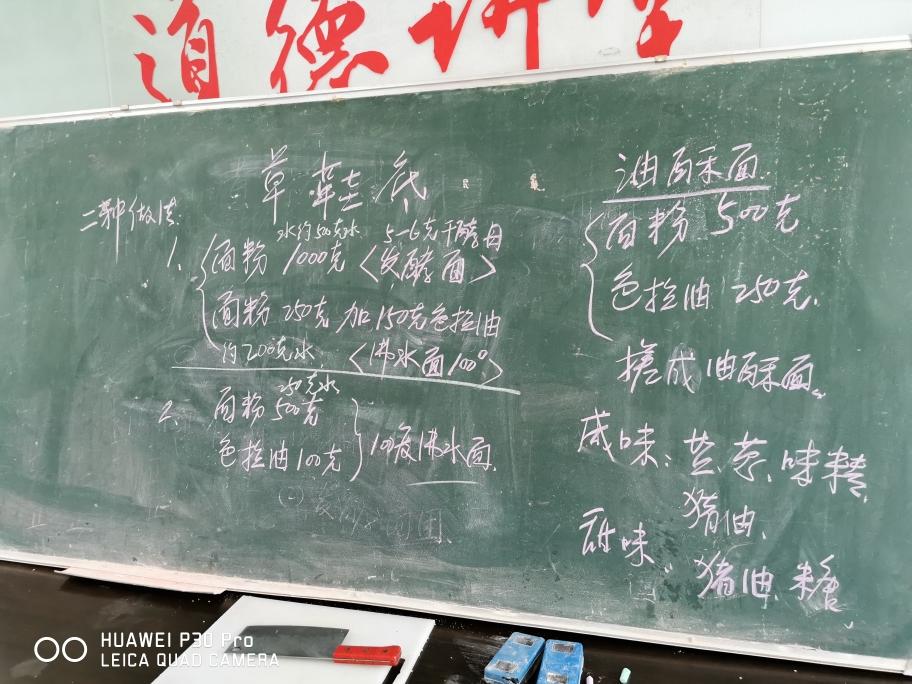 道德讲堂
草鞋底
二种做法
水约500克水 5-6克干酵母
1、面粉 1000克 <发酵面>
面粉 250克 加150克色拉油
约200克水 <沸水面100°>
250克水
2、面粉 500克
色拉油100克
100度沸水面
油酥面
面粉 500克
色拉油 250克
擦成油酥面。
咸味:葱、味精、
猪油、
甜味、
猪油、糖
HUAWEI P30 Pro
LEICA QUAD CAMERA